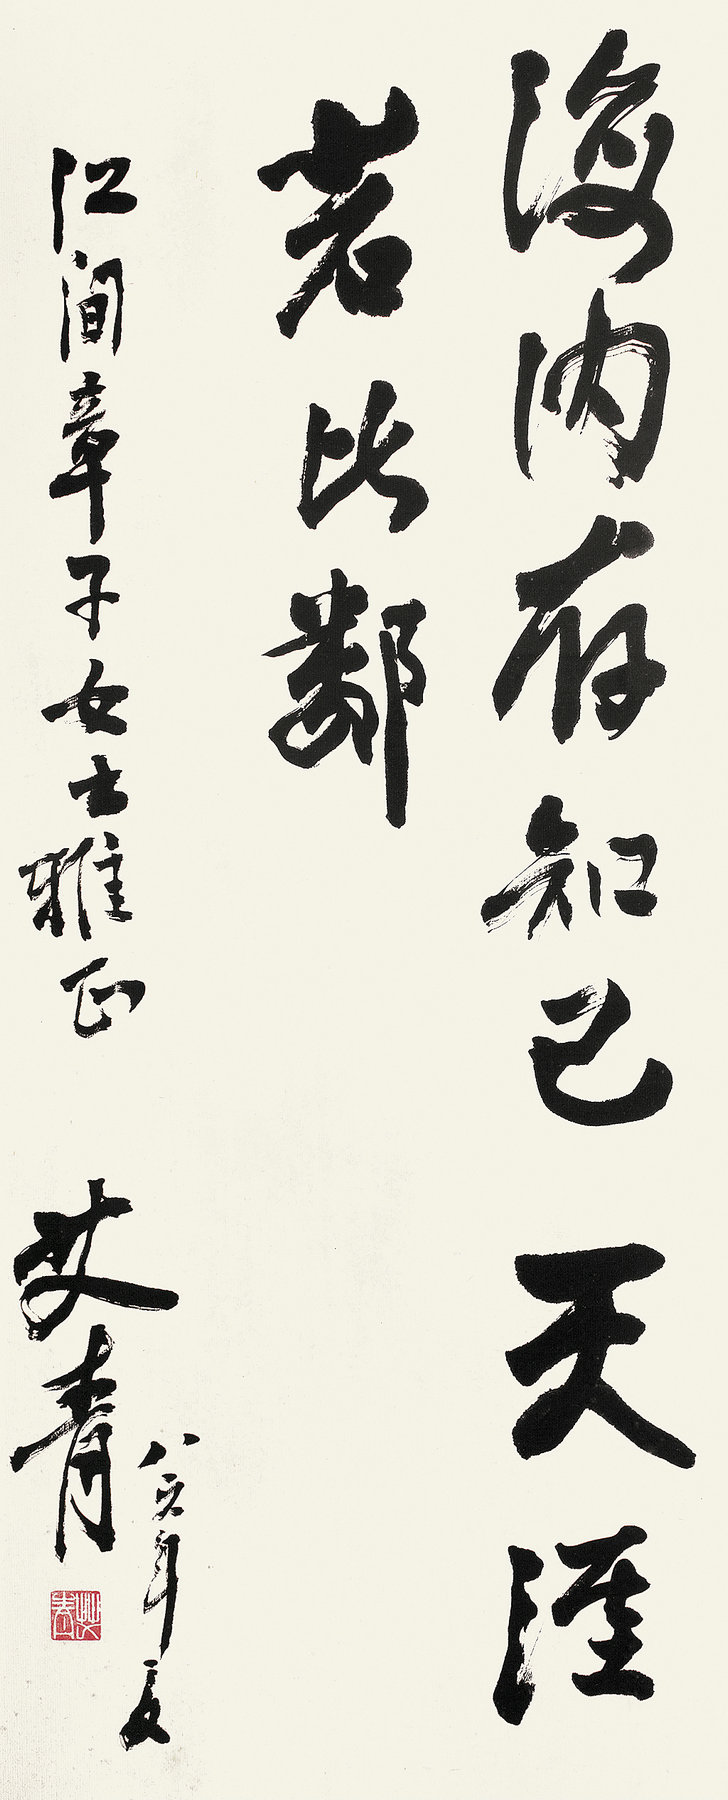 海内存知己天涯
若比邻
江间章子女士雅正
艾青
八六年夏
艾青